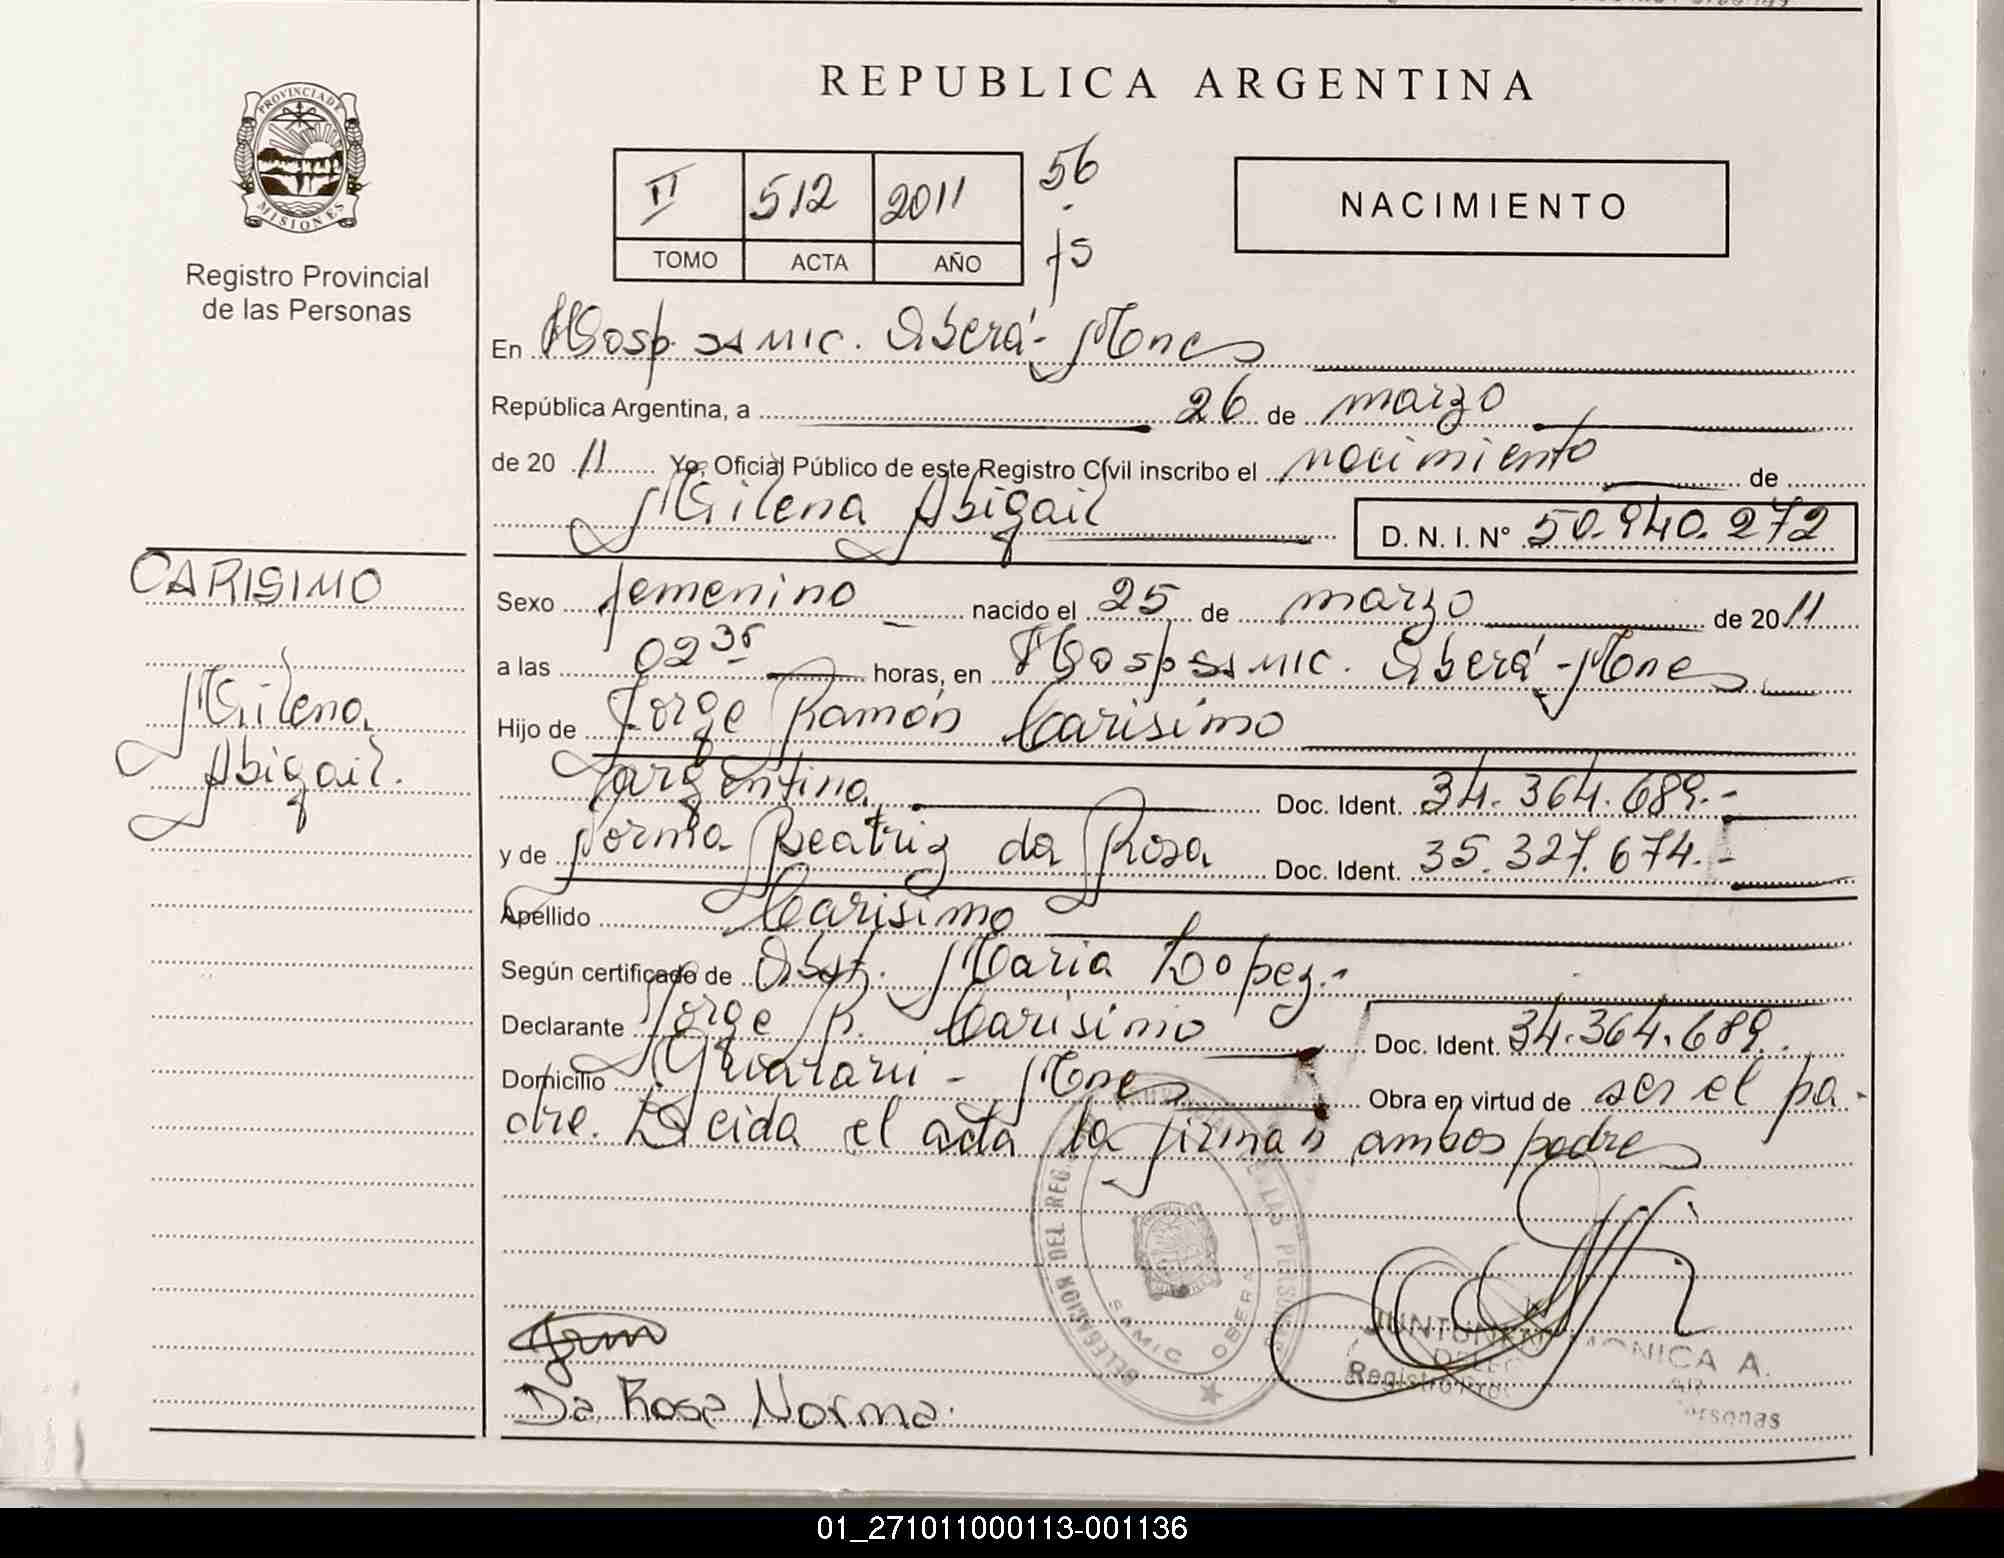 PROVINCIA DE
MISIONES
Registro Provincial
de las Personas
REPUBLICA ARGENTINA
II 512 2011 56
TOMO ACTA AÑO f5
NACIMIENTO
En Hosp. SAMIC. Oberá - Mnes
República Argentina, a 26 de marzo
de 20 11 Yo, Oficial Público de este Registro Civil inscribo el nacimiento de
Milena Abigail D. N. I. N° 50.940.272
CARISIMO
Milena
Abigail.
Sexo femenino nacido el 25 de marzo de 20 11
a las 02 35 horas, en Hosp SAMIC. Oberá - Mnes
Hijo de Jorge Ramón Carisimo
argentino Doc. Ident. 34.364.689.-
y de Norma Beatriz da Rosa Doc. Ident. 35.327.674.-
Apellido Carisimo
Según certificado de Obst. Maria Lopez.-
Declarante Jorge R. Carisimo Doc. Ident. 34.364.689.
Domicilio Guarani - Mnes Obra en virtud de ser el pa-
dre. Leida el acta la firman ambos padres
DELEGACION DEL REG. DE LAS PERSONAS
SAMIC OBERA
Da Rosa Norma.
MONICA A.
Registro Personas
01_271011000113-001136